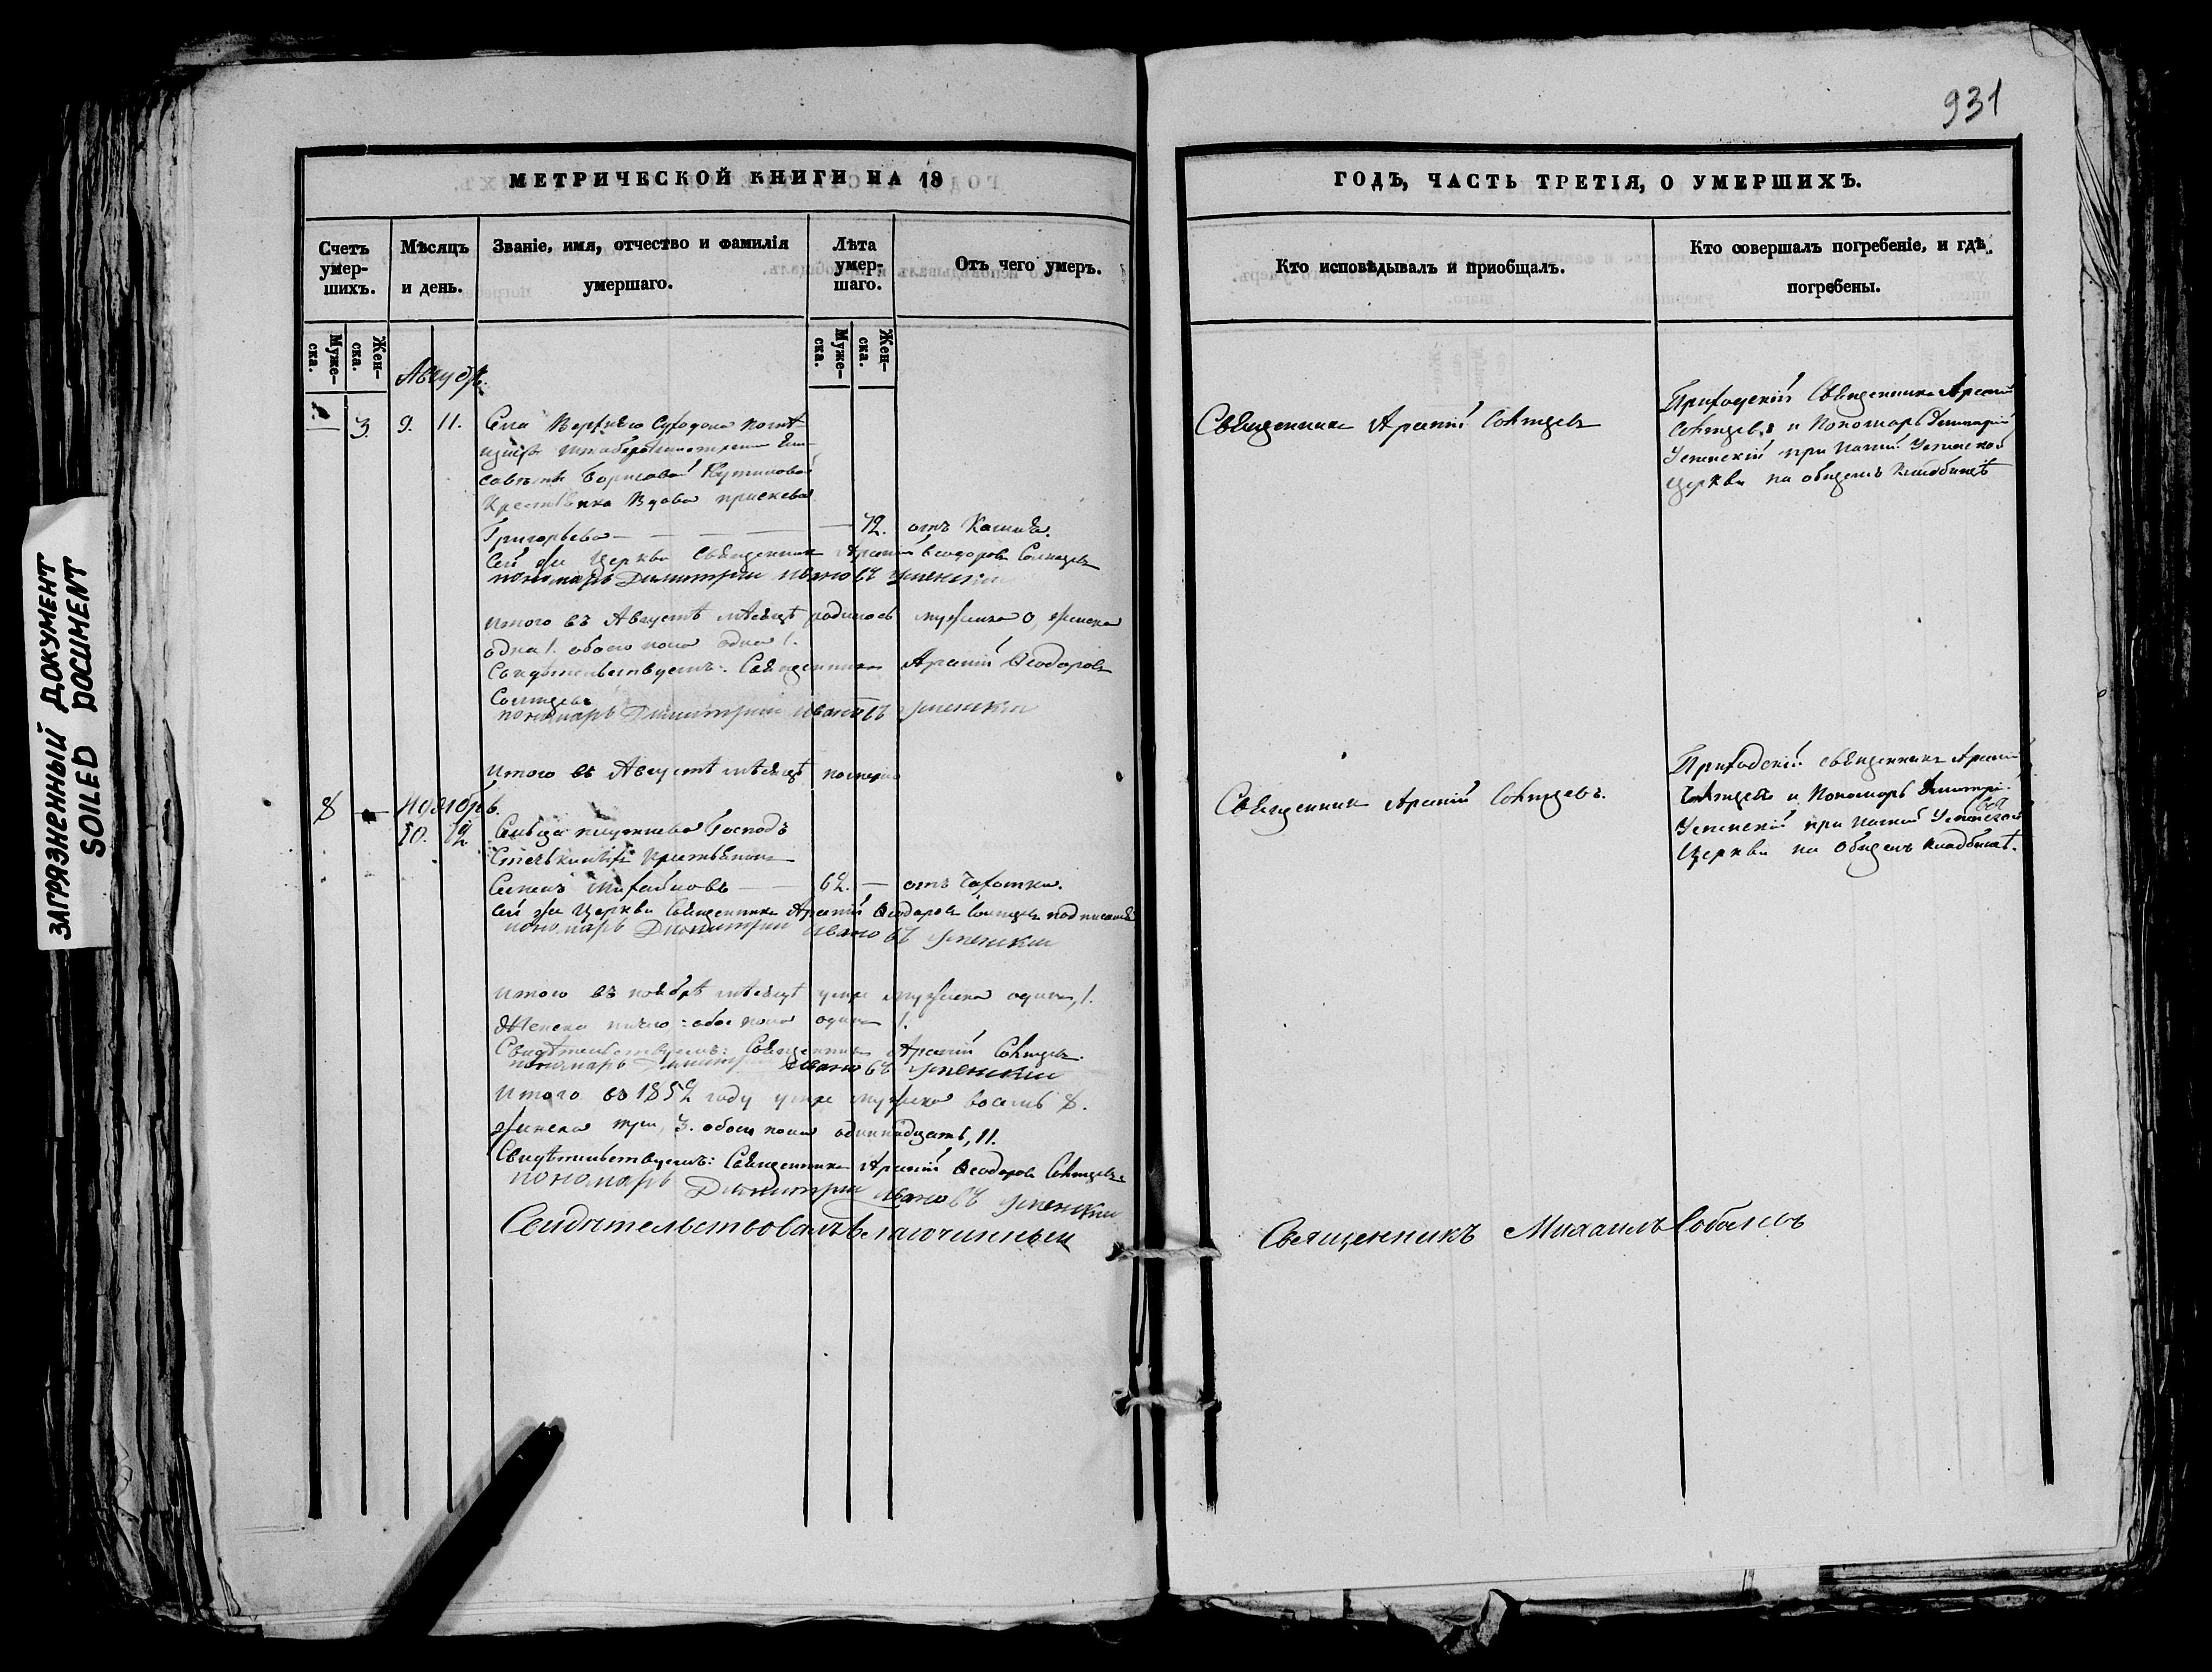 931
ЗАГРЯЗНЕННЫЙ ДОКУМЕНТ
SOILED DOCUMENT
МЕТРИЧЕСКОЙ КНИГИ НА 18
Счетъ умер-шихъ.
Мѣсяцъ и день.
Званіе, имя, отчество и фамилія умершаго.
Лѣта умер-шаго.
Отъ чего умеръ.
Муже-ска.
Жен-ска.
Муже-ска.
Жен-ска.
Августъ.
3. 9. 11. Села Верхняго Суходола помѣ
щицы
Борисовой
Крестьянка Вдова
Григорьева — — — — 72. отъ Кашля.
Сей же Церкви Священникъ Арсеній Ѳеодоровъ Солнцевъ
пономарь Димитрий Ивановъ Успенскии
Итого въ Августѣ мѣсяцѣ родилось мужеска 0, женска
одна 1. обоего пола одна 1.
Свидѣтельствуемъ: Священникъ Арсеній Ѳеодоровъ
Солнцевъ
пономарь Димитрий Ивановъ Успенскии
Итого въ Августѣ мѣсяцѣ
8 — Ноябрь.
10. 12 Сельца Господъ
Крестьянинъ
Семенъ Михайловъ — — 62. — отъ Чахотки.
Сей же Церкви Священникъ Арсеній Ѳеодоровъ Солнцевъ
пономарь Димитрии Ивановъ Успенскии
Итого въ ноябрѣ мѣсяцѣ умре мужеска одинъ, 1.
Женска обоего пола одинъ 1.
Свидѣтельствуемъ: Священникъ Арсеній Солнцевъ.
пономарь Димитрии Ивановъ Успенскии
Итого въ 1852 году умре мужеска восемь 8.
женска три, 3. обоего пола одиннадцать, 11.
Свидѣтельствуемъ: Священникъ Арсеній Ѳеодоровъ Солнцевъ
пономарь Димитрии Ивановъ Успенскии
Свидѣтельствовалъ благочинный
ГОДЪ, ЧАСТЬ ТРЕТІЯ, О УМЕРШИХЪ.
Кто исповѣдывалъ и пріобщалъ.
Кто совершалъ погребеніе, и гдѣ погребены.
Священникъ Арсеній Солнцевъ
Приходскій Священникъ Арсеній
Солнцевъ и Пономарь Димитрій
Успенскій при Успенской
Церкви на общемъ Кладбищѣ
Священникъ Арсеній Солнцевъ.
Приходскій священникъ Арсеній
Солнцевъ и Пономарь Димитрій
Успенскій при Успенской
Церкви на Общемъ кладбищѣ.
Священникъ Михаилъ